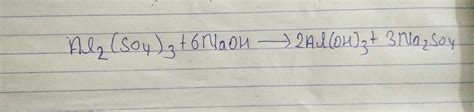 Al₂(SO₄)₃+6NaOH⟶2Al(OH)₃+3Na₂SO₄